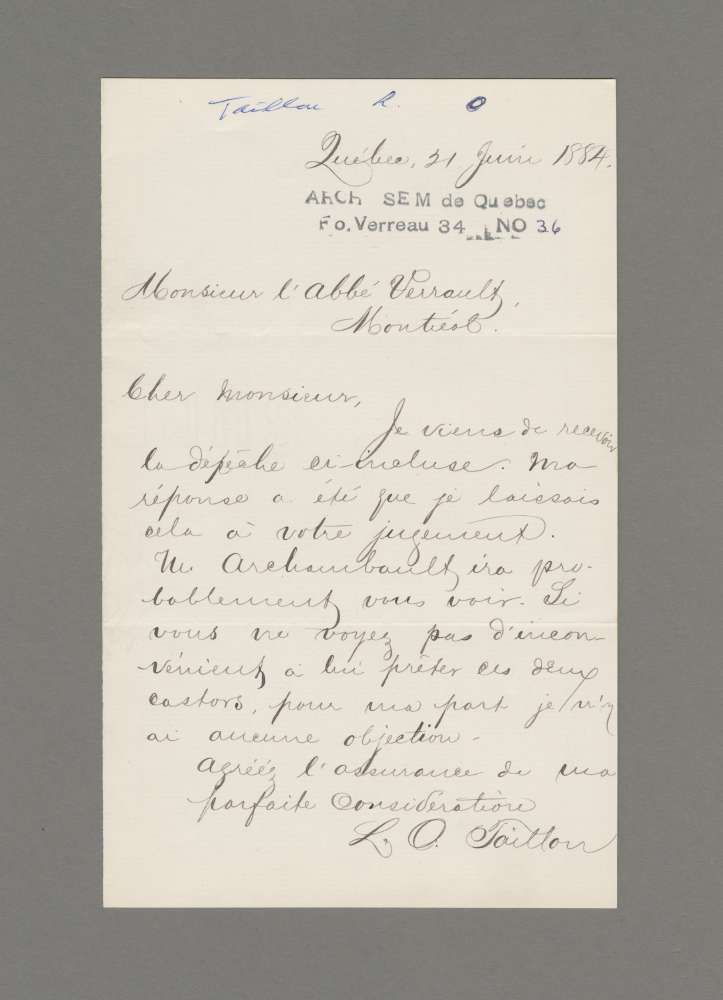 Taillon L. O
Québec, 21 Juin 1884.
ARCH SEM de Quebec
Fo. Verreau 34 NO 36
Monsieur l'abbé Verrault,
Montréal.
Cher monsieur,
Je viens de recevoir
la dépêche ci-incluse. Ma
réponse a été que je laissais
cela à votre jugement.
M. Archambault ira pro-
bablement vous voir. Si
vous ne voyez pas d'incon-
vénient à lui prêter ces deux
castors, pour ma part je n'y
ai aucune objection.
Agréez l'assurance de ma
parfaite considération
L. O. Taillon